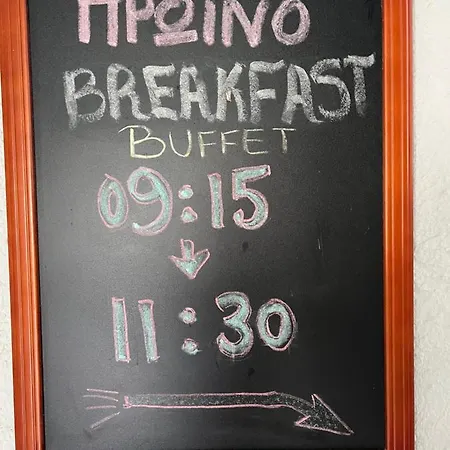 ΠΡΩΙΝΟ
BREAKFAST
BUFFET
09:15
11:30